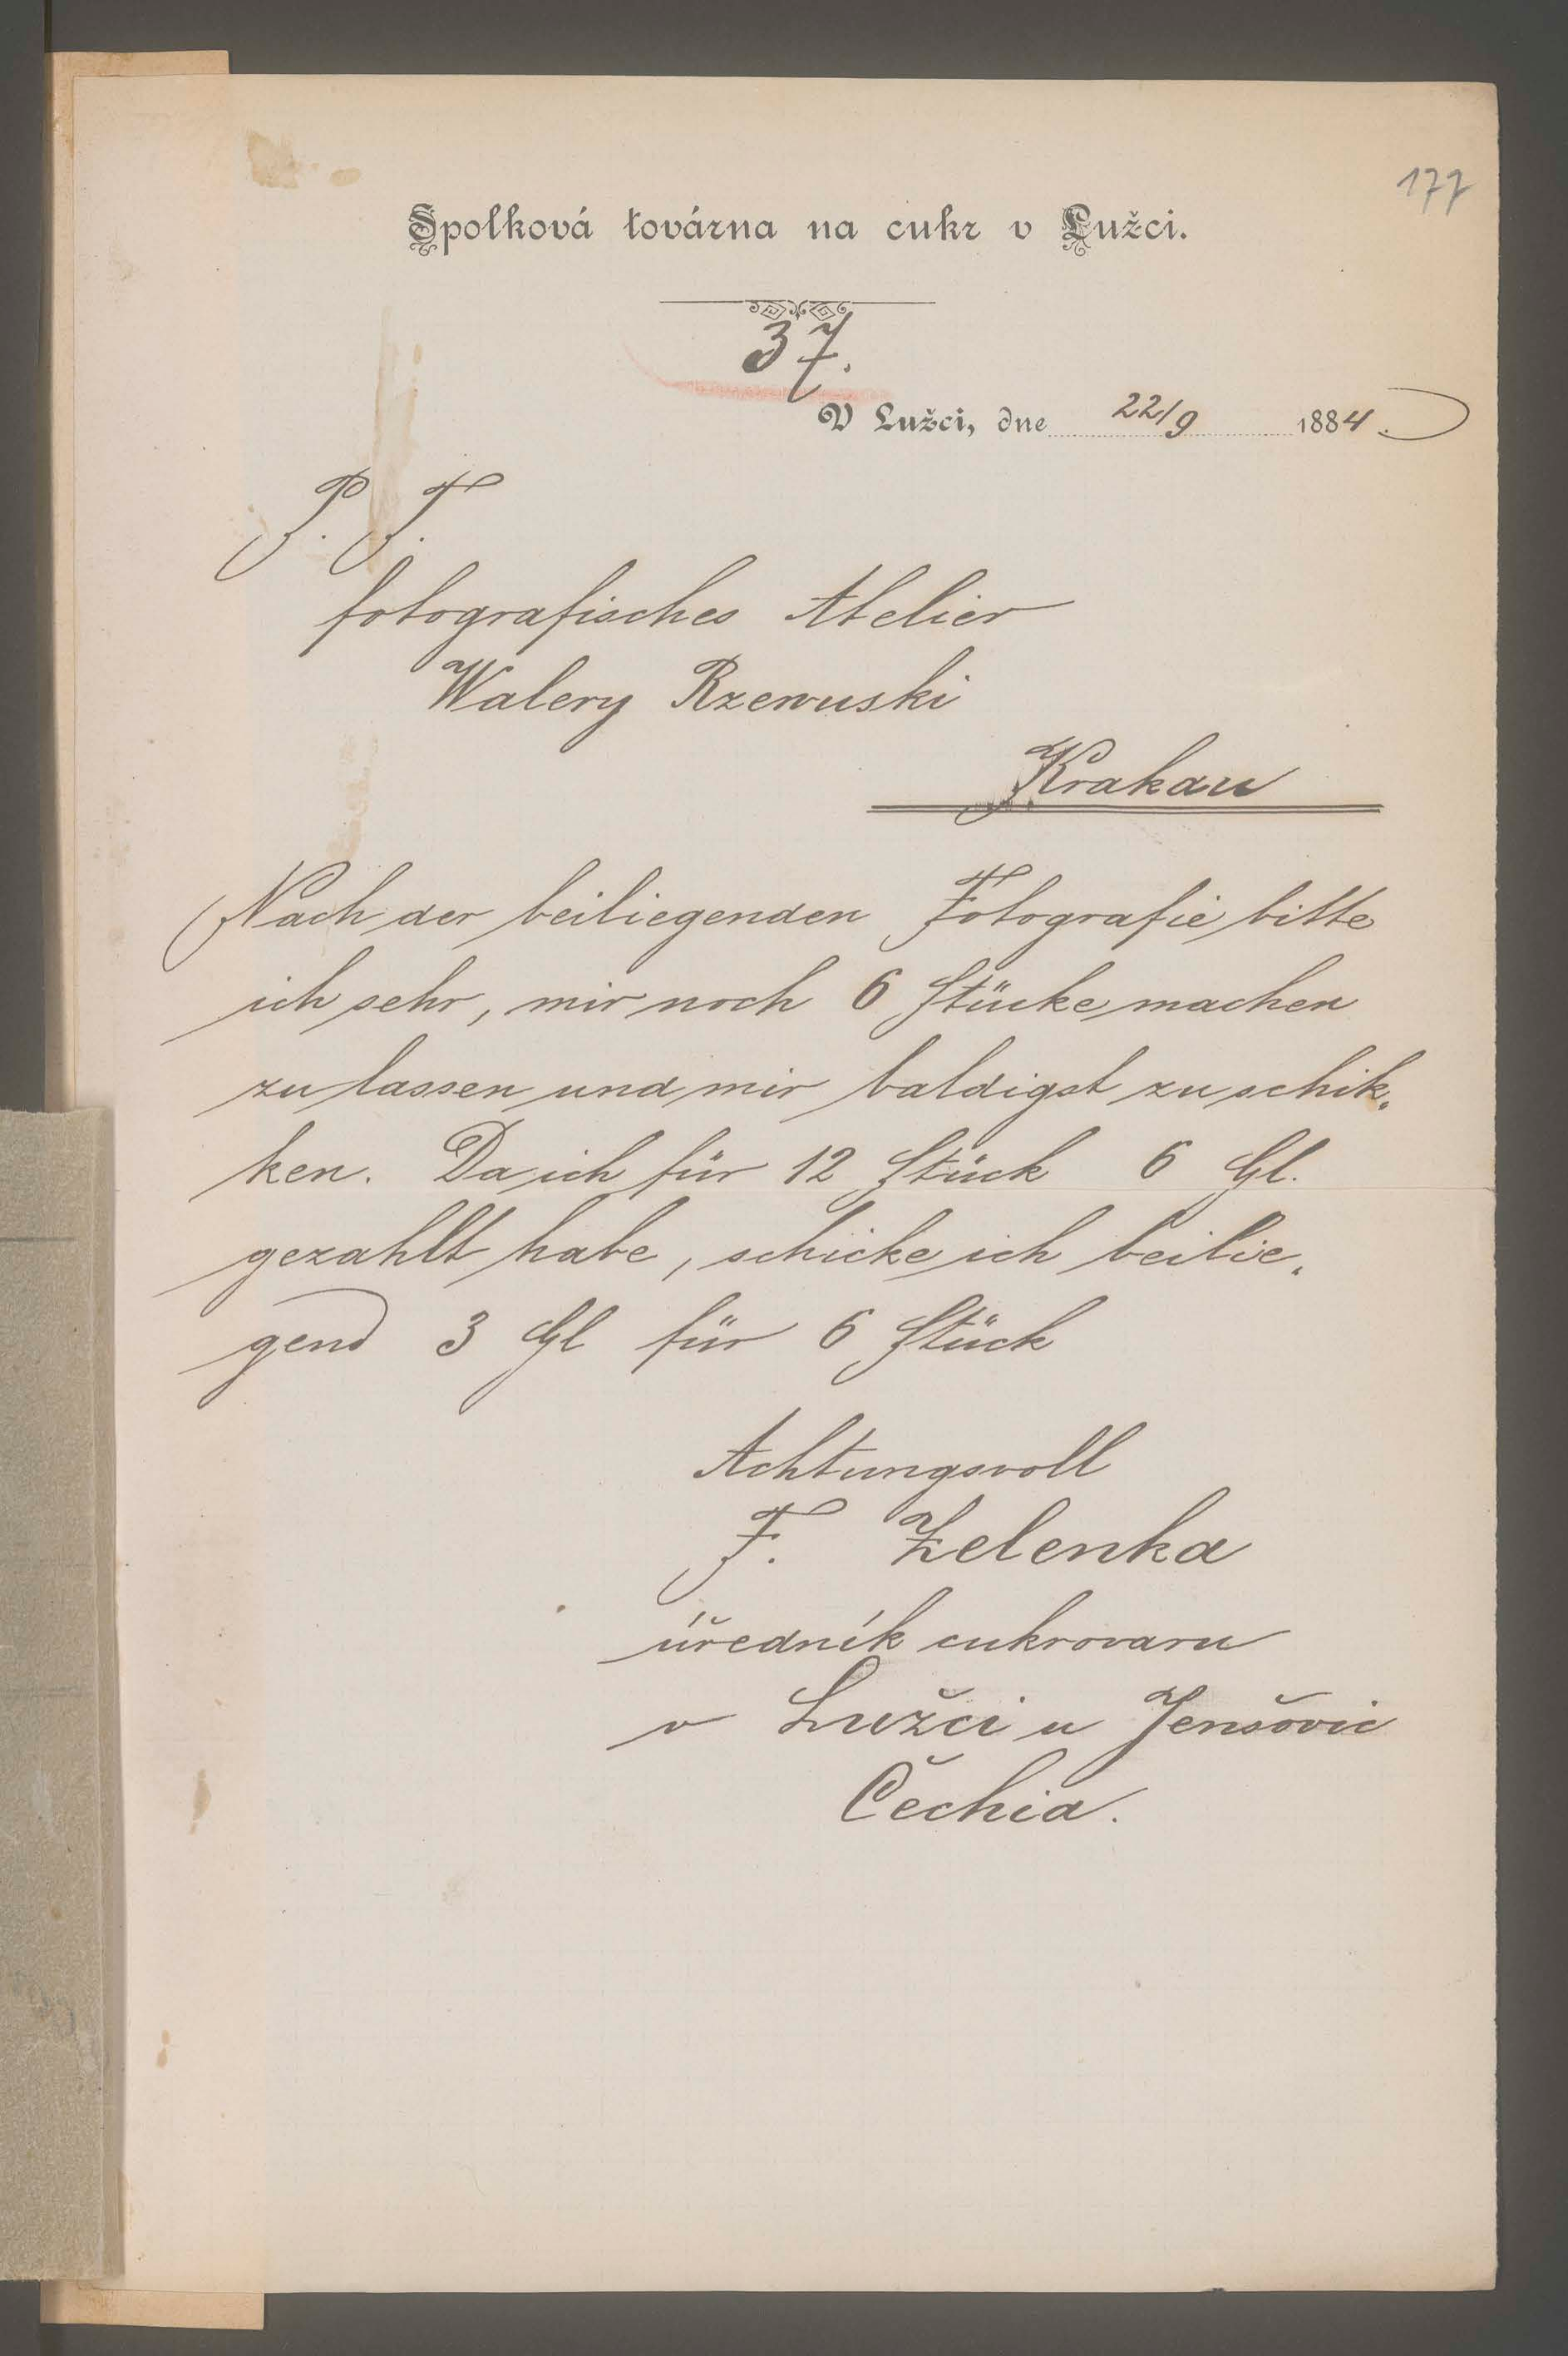 177
Spolková továrna na cukr v Lužci.
37.
V Lužci, dne 22/9 1884.
P. T.
fotografisches Atelier
Walery Rzewuski
Krakau
Nach der beiliegenden Fotografie bitte
ich sehr, mir noch 6 Stücke machen
zu lassen und mir baldigst zu schik„
ken. Da ich für 12 Stück 6 Gl.
gezahlt habe, schicke ich beilie„
gend 3 Gl für 6 Stück
Achtungsvoll
F. Zelenka
úředník cukrovaru
v Lužci u Jenšovic
Čechia.